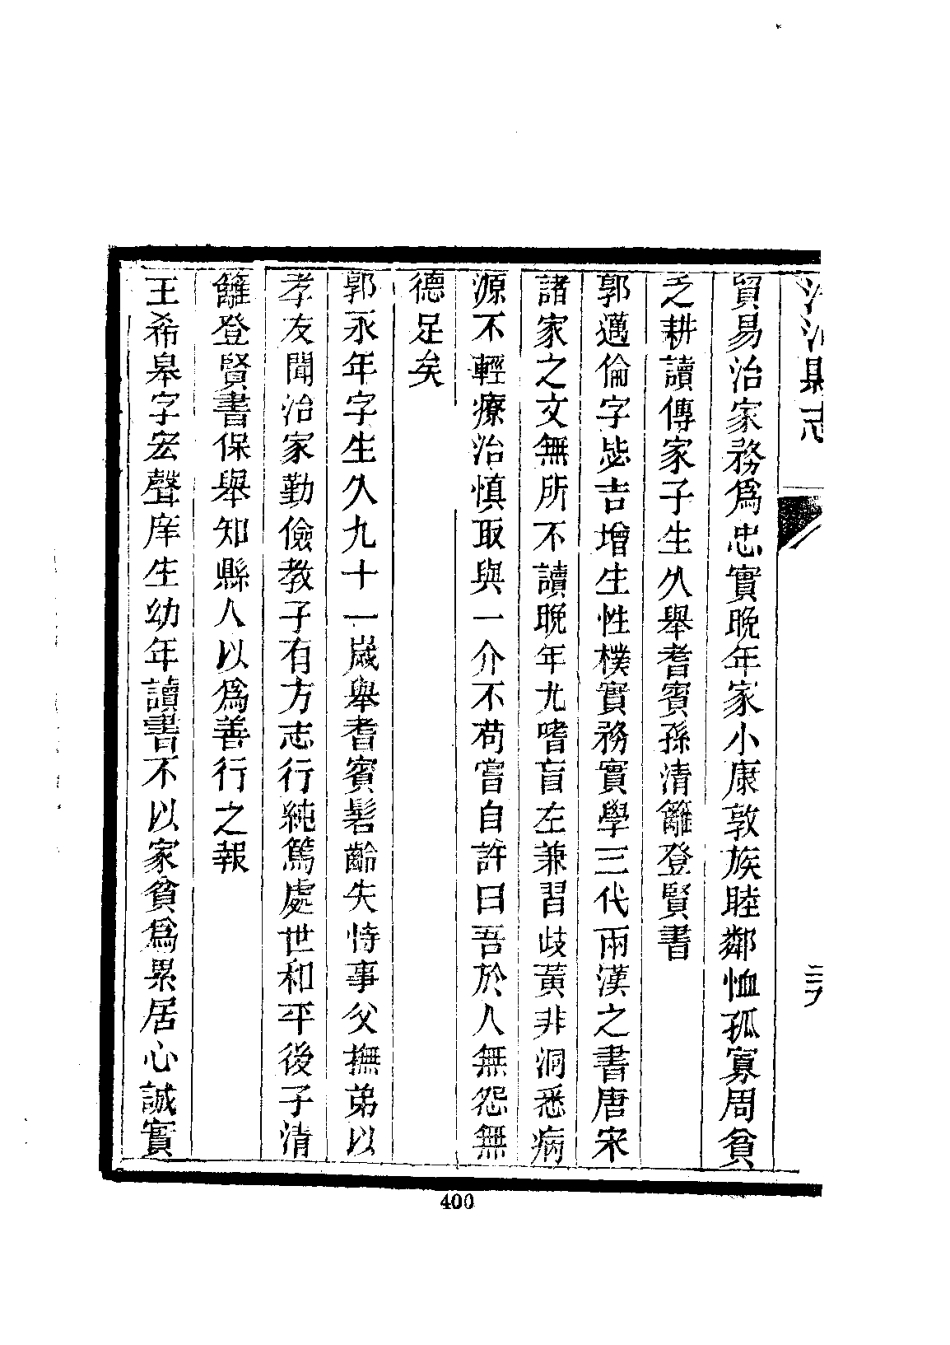 縣志
三九
貿易治家務爲忠實晚年家小康敦族睦鄰恤孤寡周貧
乏耕讀傳家子生久舉耆賓孫清籬登賢書
郭邁倫字毖吉增生性樸實務實學三代兩漢之書唐宋
諸家之文無所不讀晚年尤嗜盲左兼習歧黃非洞悉病
源不輕療治慎取與一介不苟嘗自許曰吾於人無怨無
德足矣
郭永年字生久九十一歲舉耆賓髫齡失恃事父撫弟以
孝友聞治家勤儉教子有方志行純篤處世和平後子清
籬登賢書保舉知縣人以爲善行之報
王希皋字宏聲庠生幼年讀書不以家貧爲累居心誠實
400